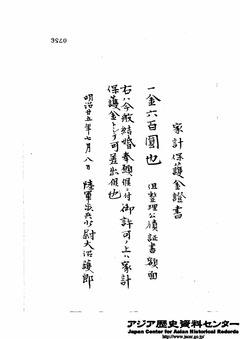 0736
家計保護金證書
一金六百圓也 但整理公債証書額面
右ハ今般結婚奉願候ニ付御許可ノ上ハ家計
保護金トシテ可差出候也
明治廿五年七月八日 陸軍歩兵少尉大沼護郎
アジア歴史資料センター
Japan Center for Asian Historical Records
http://www.jacar.go.jp/